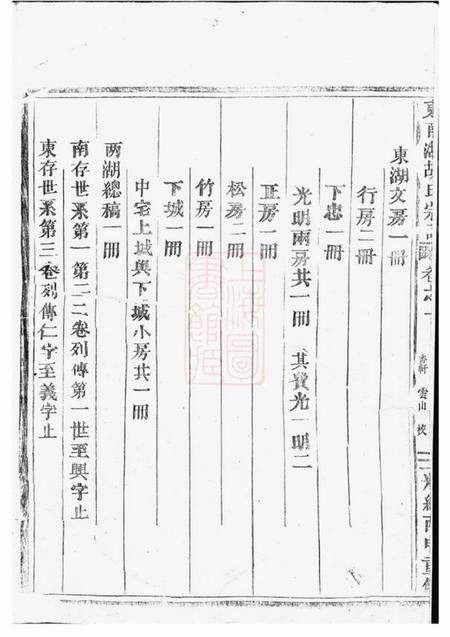 東南湖胡氏宗譜 卷之一 李軒 雲山 校 光緒丙申重修
東湖文房一冊
行房二冊
下忠一冊
光明兩房共一冊 其實光一明二
正房一冊
松房二冊
竹房一冊
下城一冊
中宅上城與下城小房共一冊
兩湖總稿一冊
南存世系第一第二三卷列傳第一世至興字止
東存世系第三卷列傳仁字至義字止
上海圖書館藏